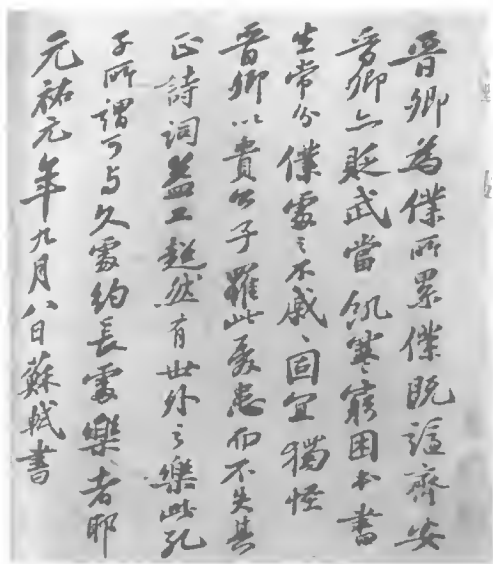 晉卿為僕所累僕既謫齊安
晉卿亦貶武當飢寒窮困本書
生常分僕處之不戚戚固宜獨怪
晉卿以貴公子罹此憂患而不失其
正詩詞益工超然有世外之樂此孔
子所謂可與久處約長處樂者耶
元祐元年九月八日蘇軾書